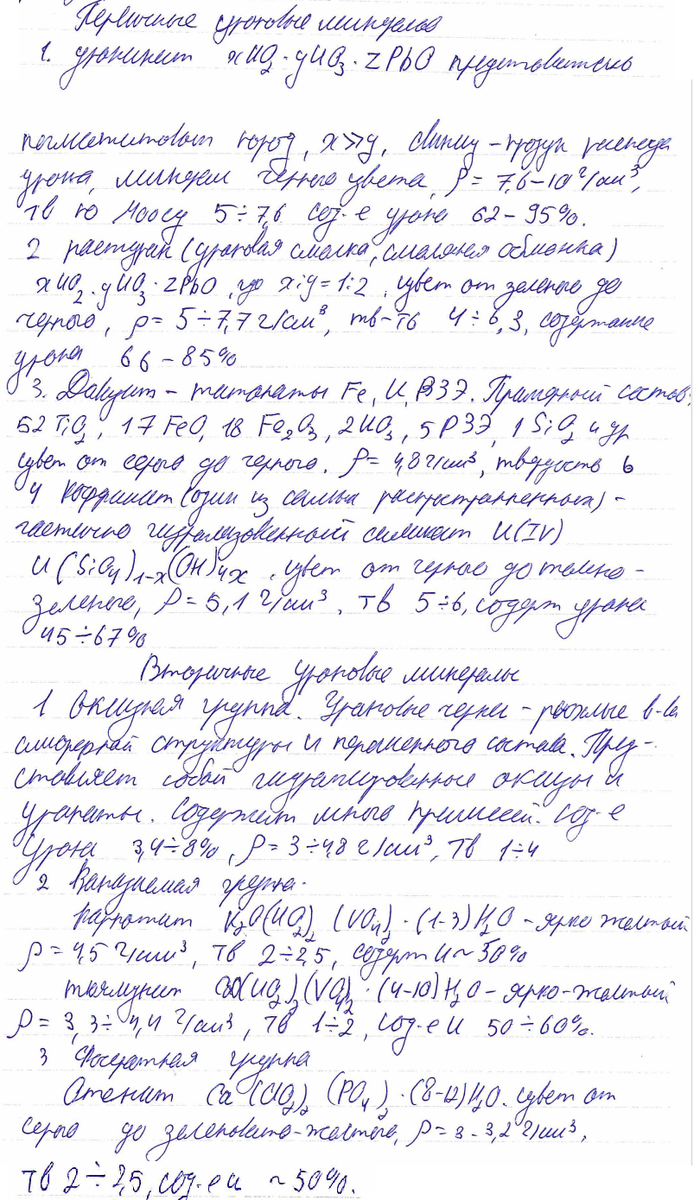 Первичные урановые минералы
1. уранинит xUO₂·yUO₃·zPbO представитель
пегматитовых пород, x≫y, свинец – продукт распада
урана, минерал черного цвета, ρ = 7,6–10 г/см³,
тв по Моосу 5÷7,6 сод-е урана 62–95%.
2 настуран (урановая смолка, смоляная обманка)
xUO₂·yUO₃·zPbO, где x:y = 1:2, цвет от зеленого до
черного, ρ = 5÷7,7 г/см³, тв-ть 4÷6,3, содержание
урана 66–85%
3. Давидит – титанаты Fe, U, РЗЭ. Примерный состав:
52TiO₂, 17FeO, 18 Fe₂O₃, 2UO₃, 5РЗЭ, 1SiO₂ и др
цвет от серого до черного. ρ = 4,8 г/см³, твердость 6
4 Коффинит (один из самых распространенных) –
частично гидролизованный силикат U(IV)
U(SiO₄)₁₋ₓ(OH)₄ₓ, цвет от черного до темно-
зеленого, ρ = 5,1 г/см³, тв 5÷6, содерж урана
45÷67%
Вторичные урановые минералы
1 Оксидная группа. Урановые черни – рыхлые в-ва
аморфной структуры и переменного состава. Пред-
ставляет собой гидратированные оксиды и
уранаты. Содержит много примесей. Сод-е
Урана 3,4÷8%, ρ = 3÷4,8 г/см³, тв 1÷4
2 Ванадиевая группа.
Карнотит K₂O(UO₂)₂(VO₄)₂·(1-3)H₂O – ярко желтый
ρ = 4,5 г/см³, тв 2÷2,5, содерж U ~ 50%
тюямунит (UO₂)₂(VO₄)₂·(4-10)H₂O – ярко-желтый
ρ = 3,3÷4,4 г/см³, тв 1÷2, сод-е U 50÷60%.
3 Фосфатная группа
Отенит Ca(UO₂)₂(PO₄)₂·(8-12)H₂O. цвет от
серого до зеленовато-желтого, ρ = 3-3,2 г/см³,
тв 2÷2,5, сод-е U ~50%.